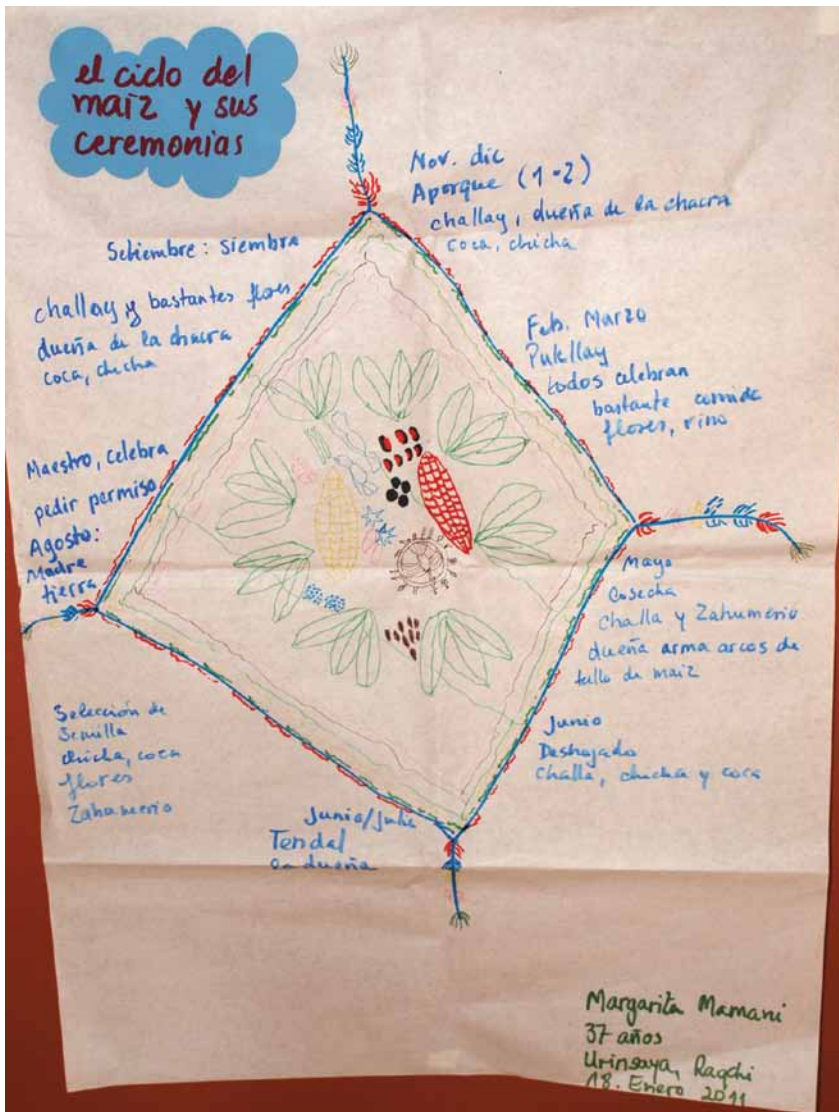 el ciclo del
maíz y sus
ceremonias
Nov. dic
Aporque (1-2)
challay, dueña de la chacra
coca, chicha
Setiembre: siembra
challay y bastantes flores
dueña de la chacra
coca, chicha
Feb. Marzo
Pukllay
todos celebran
bastante comida
flores, vino
Maestro, celebra
pedir permiso
Agosto:
Madre
tierra
Mayo
Cosecha
challa y Zahumerio
dueña arma arcos de
tallo de maiz
Selección de
Semilla
chicha, coca
flores
Zahumerio
Junio
Deshojado
challa, chicha y coca
Junio/julio
Tendal
la dueña
Margarita Mamani
37 años
Urinsaya, Raqchi
18. Enero 2011